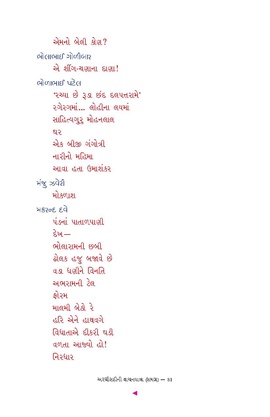 એમનો બેલી કોણ?
ભોલાભાઈ ગોળીબાર
એ શીંગ-ચણાના દાણા!
ભોળાભાઈ પટેલ
'રચ્યા છે રૂડા છંદ દલપતરામે'
રગેરગમાં... લોહીના લયમાં
સાહિત્યગુરુ મોહનલાલ
ઘર
એક બીજી ગંગોત્રી
નારીનો મહિમા
આવા હતા ઉમાશંકર
મંજુ ઝવેરી
મોકળાશ
મકરન્દ દવે
પંડનાં પાતાળપાણી
દેખ—
ભોલારામની છબી
ઢોલક હજુ બજાવે છે
વડા ધણીને વિનતિ
અભરામની ટેલ
ફોરમ
માલમી બેઠો રે
હરિ એને હાથવગે
વિધાતાએ દીકરી ઘડી
વળતા આવ્યો હો!
નિરધાર
અરધીસદીની વાચનયાત્રા (સમગ્ર) — 33